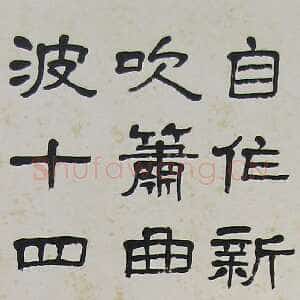 自作新
吹簫曲
波十四
shufawang.cn